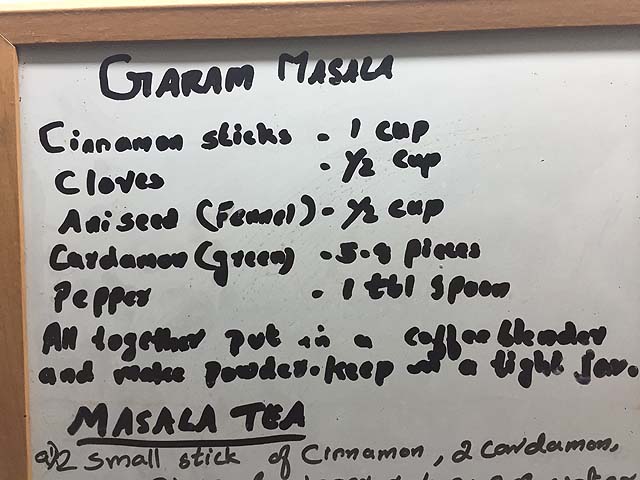 GARAM MASALA
Cinnamon sticks - 1 cup
Cloves - 1/2 cup
Aniseed (Fennel) - 1/2 cup
Cardamon (green) - 5-9 pieces
Pepper - 1 tbl spoon
All together put in a coffee blender
and make powder. keep in a tight jar.
MASALA TEA
a) 2 small stick of Cinnamon, 2 cardamon,